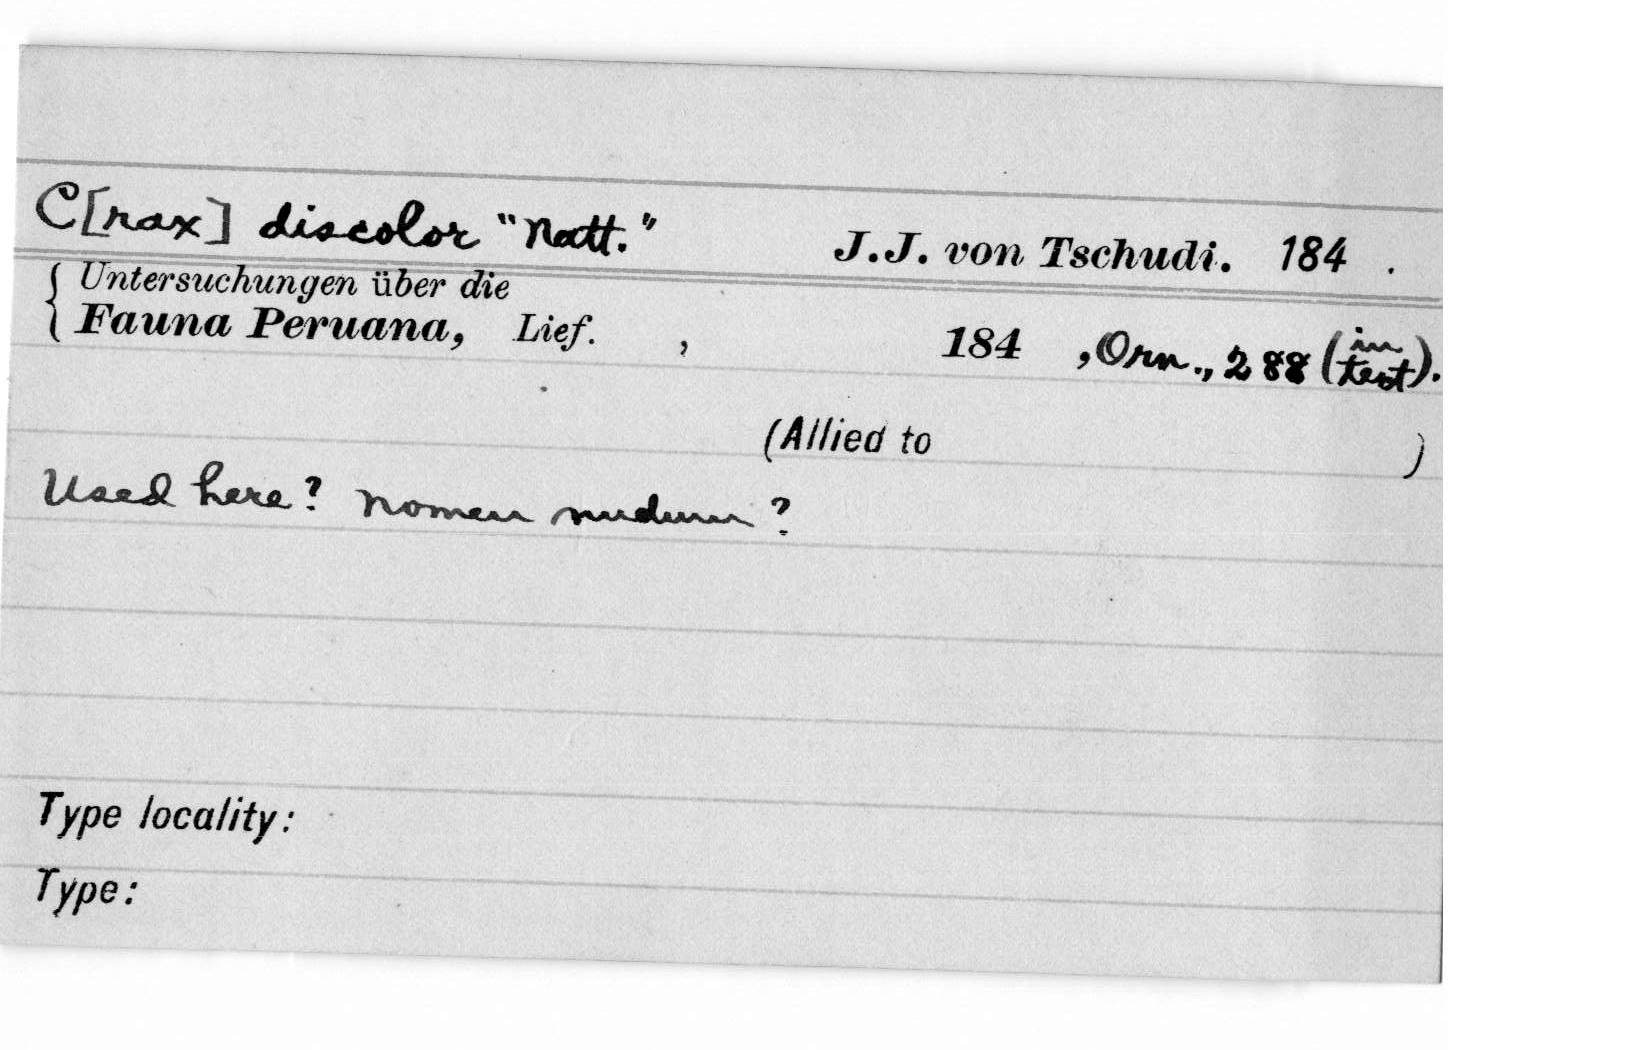 C[rax] discolor "Natt." J.J. von Tschudi. 184 .
{ Untersuchungen über die
Fauna Peruana, Lief. , 184 , Orn., 288 (in text).
(Allied to )
Used here? Nomen nudum?
Type locality:
Type: